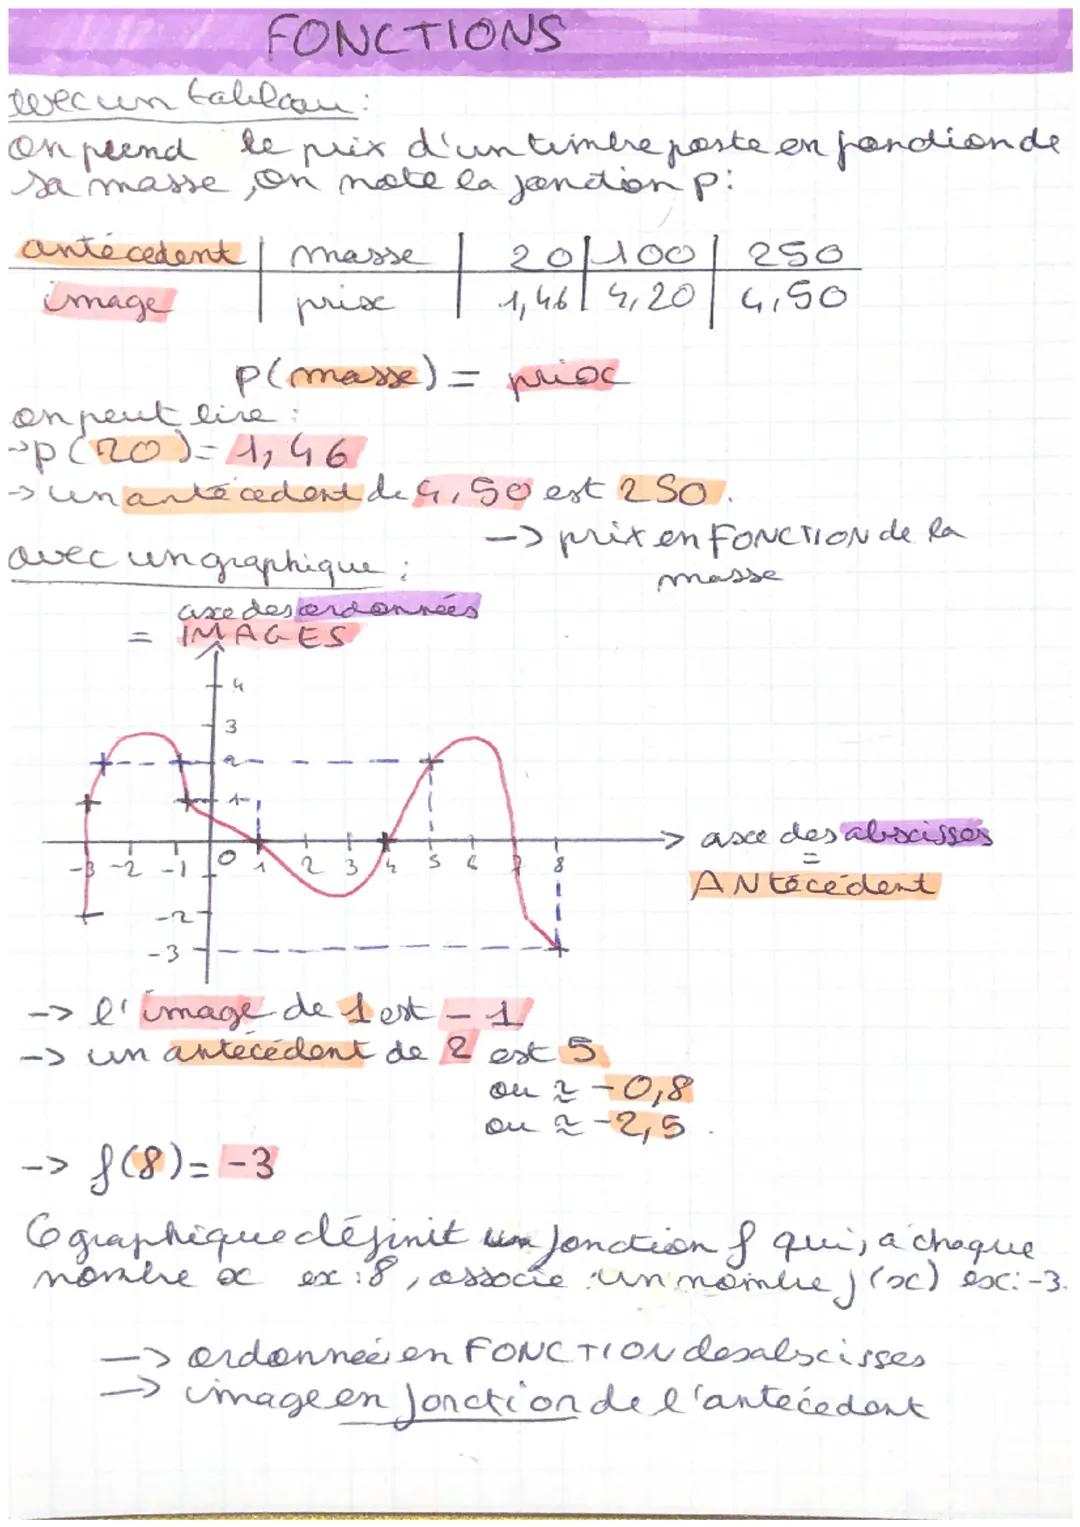 FONCTIONS
avec un tableau :
on prend le prix d'un timbre poste en fonction de
sa masse, on note la fonction p :
antécédent | masse | 20 | 100 | 250
image | prix | 1,46 | 4,20 | 4,50
p(masse) = prix
on peut lire :
->p(20) = 1,46
-> un antécédent de 4,50 est 250.
-> prix en FONCTION de la
masse
avec un graphique :
axe des ordonnées
= IMAGES
4
3
2
1
-3 -2 -1 0 1 2 3 4 5 6 7 8
-> axe des abscisses
=
ANtécédent
-2
-3
-> l'image de 1 est -1
-> un antécédent de 2 est 5
ou ≃ -0,8
ou ≃ -2,5.
-> f(8) = -3
Ce graphique définit un fonction f qui, a chaque
nombre x ex : 8, associe un nombre f(x) ex : -3.
-> ordonnée en FONCTION des abscisses
-> image en fonction de l'antécédent